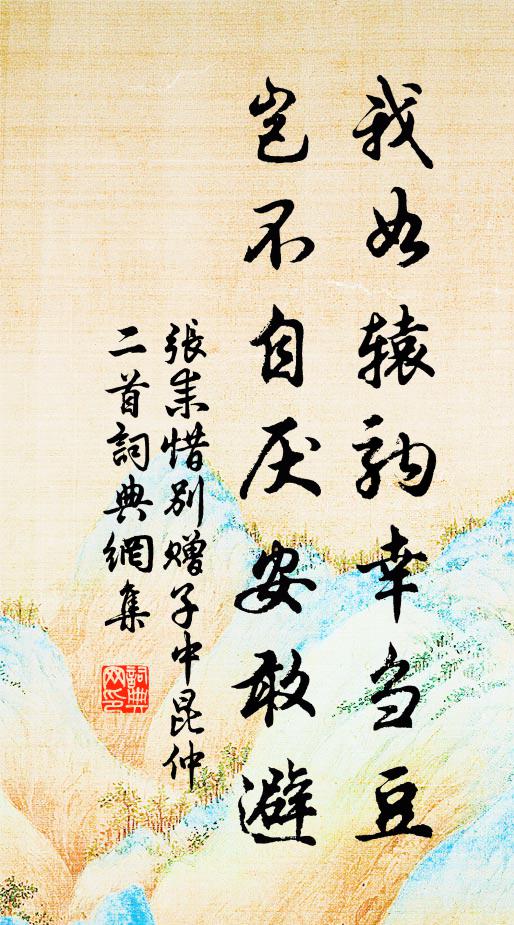 我如辕驹幸刍豆
岂不自厌安敢避
張耒惜别赠子中昆仲
二首詞典網集
詞典
网印